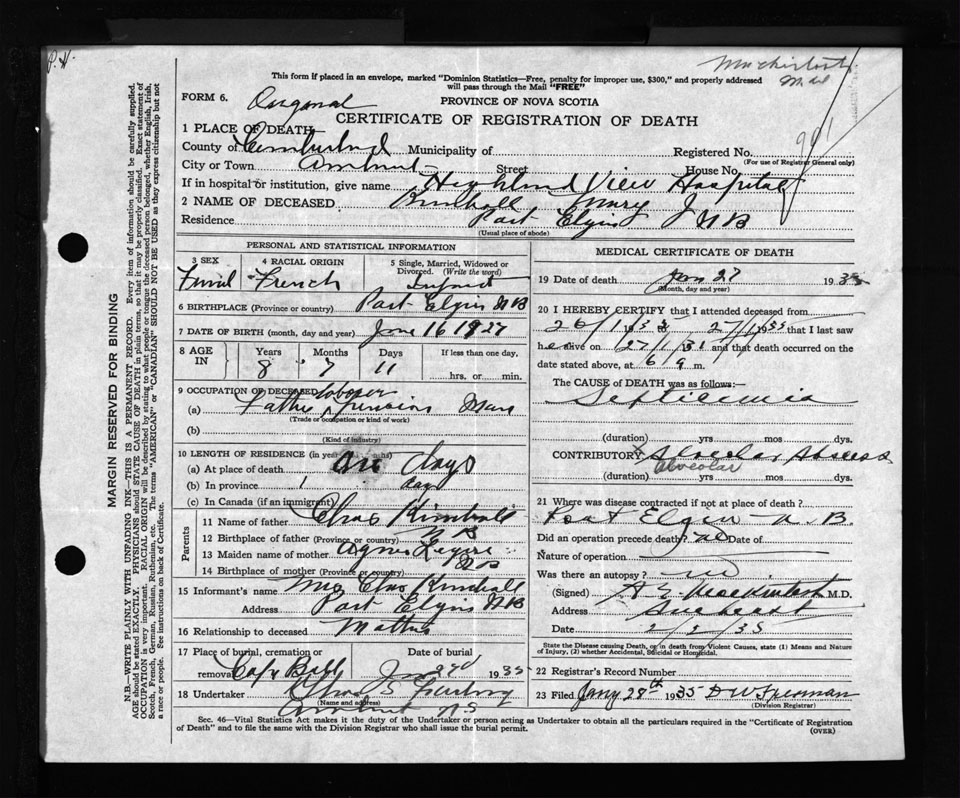 P. H.
Mackintosh
M.d
This form if placed in an envelope, marked "Dominion Statistics—Free, penalty for improper use, $300," and properly addressed
will pass through the Mail "FREE"
FORM 6. Original
PROVINCE OF NOVA SCOTIA
CERTIFICATE OF REGISTRATION OF DEATH
1 PLACE OF DEATH—
County of Cumberland Municipality of Registered No.
(For use of Registrar General only)
City or Town Amherst Street House No.
If in hospital or institution, give name Highland View Hospital
2 NAME OF DECEASED Kimball Mary J
Residence Port Elgin N B
(Usual place of abode)
PERSONAL AND STATISTICAL INFORMATION
3 SEX 4 RACIAL ORIGIN 5 Single, Married, Widowed or Divorced. (Write the word)
French
6 BIRTHPLACE (Province or country) Port Elgin N B
7 DATE OF BIRTH (month, day and year) June 16 1927
8 AGE IN Years Months Days If less than one day,
8 7 11 hrs. or min.
9 OCCUPATION OF DECEASED
(a) Father
(Trade or occupation or kind of work)
(b)
(Kind of industry)
10 LENGTH OF RESIDENCE (in years and months)
(a) At place of death one days
(b) In province 1 days
(c) In Canada (if an immigrant)
Parents
11 Name of father Chas Kimball
12 Birthplace of father (Province or country) N B
13 Maiden name of mother Agnes Legere
14 Birthplace of mother (Province or country) N B
15 Informant's name Mrs Chas Kimball
Address Port Elgin N B
16 Relationship to deceased Mother
17 Place of burial, cremation or removal Date of burial
Cape Bald Jan 1935
18 Undertaker Chas S
(Name and address)
Amherst N S
MEDICAL CERTIFICATE OF DEATH
19 Date of death Jan 27 1935
(Month, day and year)
20 I HEREBY CERTIFY that I attended deceased from
26/1 27/1 1935 that I last saw
h alive on 27/1 and that death occurred on the
date stated above, at 6 a m.
The CAUSE OF DEATH was as follows:—
Septicemia
(duration) yrs mos dys.
CONTRIBUTORY Alveolar Abscess
alveolar
(duration) yrs mos dys.
21 Where was disease contracted if not at place of death?
Port Elgin N. B.
Did an operation precede death? no Date of
Nature of operation
Was there an autopsy? no
(Signed) Mackintosh M.D.
Address Amherst
Date 2/2/35
State the Disease causing Death, or in death from Violent Causes, state (1) Means and Nature of Injury, (2) whether Accidental, Suicidal or Homicidal.
22 Registrar's Record Number
23 Filed Jany 28th 1935 D W Freeman
(Division Registrar)
Sec. 46—Vital Statistics Act makes it the duty of the Undertaker or person acting as Undertaker to obtain all the particulars required in the "Certificate of Registration
of Death" and to file the same with the Division Registrar who shall issue the burial permit.
(OVER)
MARGIN RESERVED FOR BINDING
N.B.—WRITE PLAINLY WITH UNFADING INK—THIS IS A PERMANENT RECORD. Every item of information should be carefully supplied.
AGE should be stated EXACTLY. PHYSICIANS should STATE CAUSE OF DEATH in plain terms, so that it may be properly classified. Exact statement of
OCCUPATION is very important. RACIAL ORIGIN will be described by stating to what people or tongue the deceased person belonged, whether English, Irish,
Scotch, French, German, Russian, Ruthenian, etc. The terms "AMERICAN" or "CANADIAN" SHOULD NOT BE USED as they express citizenship but not
a race or people. See instructions on back of Certificate.